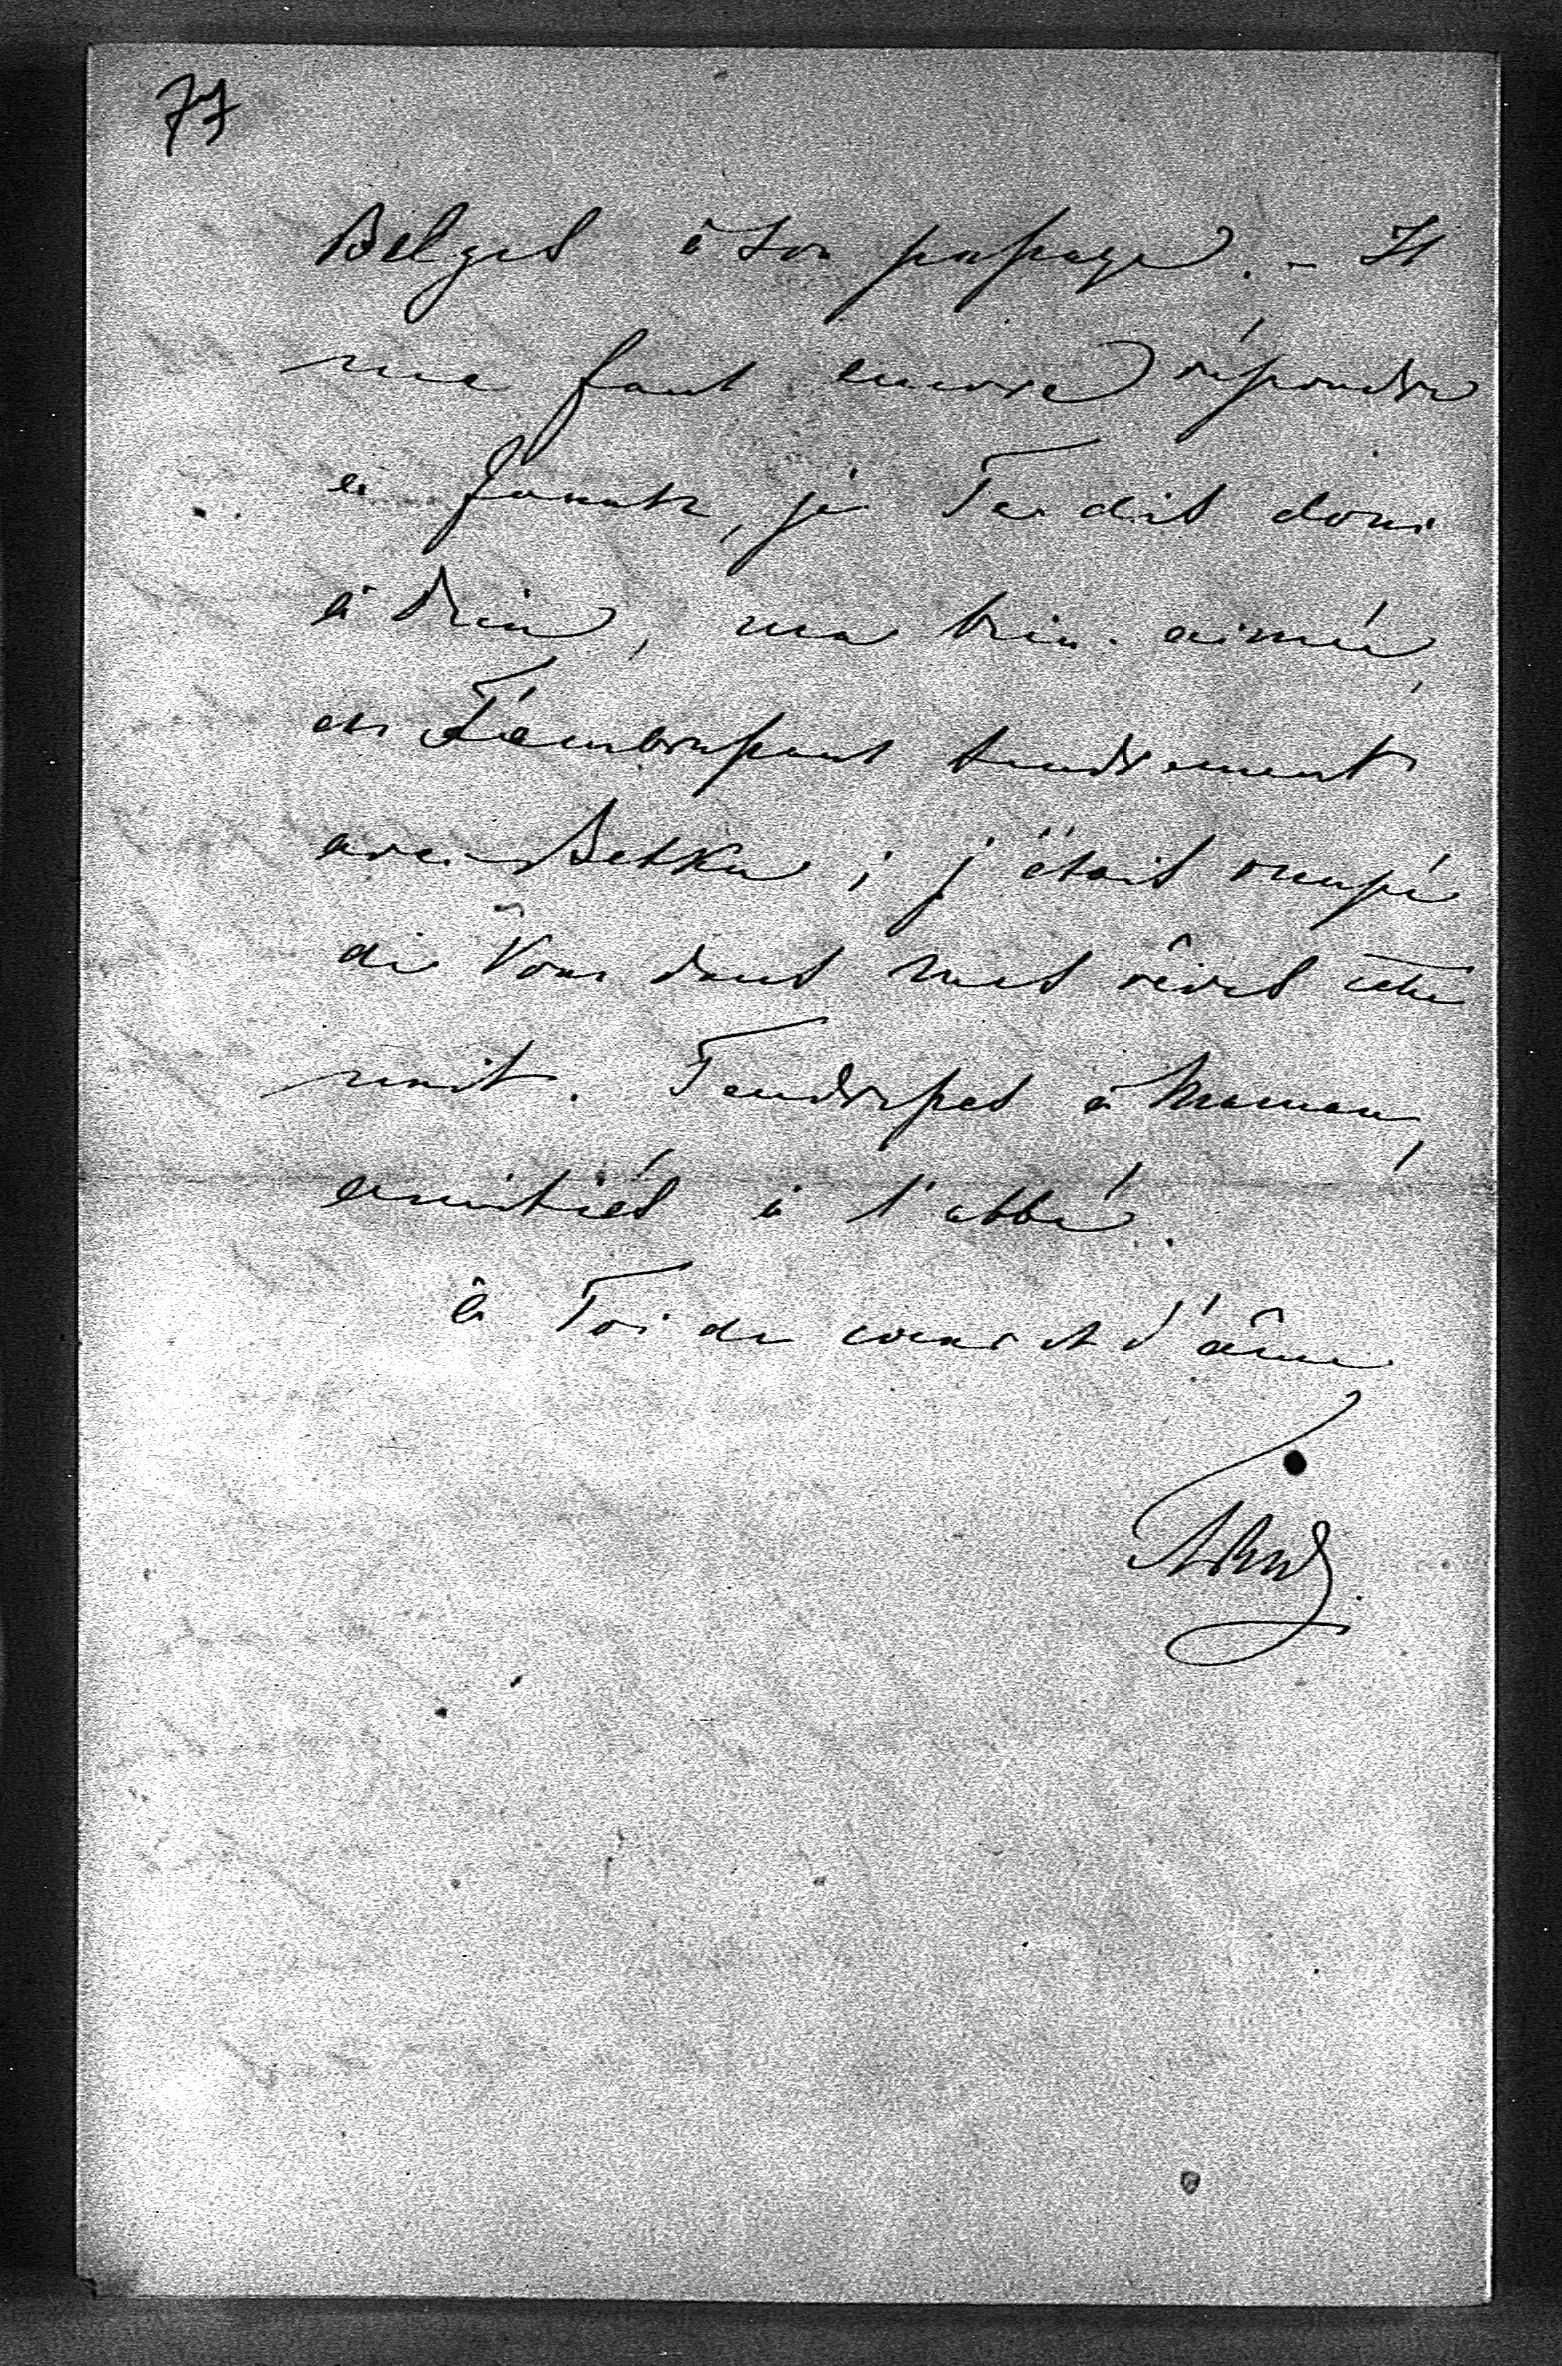 77
Belges à son passage. - Il
me faut encore répondre
à , je Te dis donc
à Dieu, ma bien-aimée,
en T'embrassant tendrement
avec Betka ; j'étais occupé
de Vous dans mes rêves cette
nuit. Tendresses à Maman,
amitiés à l'abbé.
à Toi de coeur et d'âme